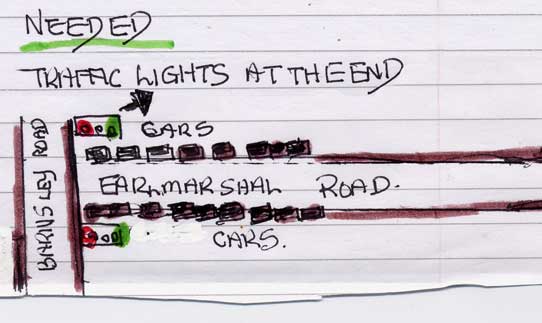 NEEDED
TRAFFIC LIGHTS AT THE END
CARS
BARNSLEY ROAD
EARLMARSHAL ROAD.
CARS.